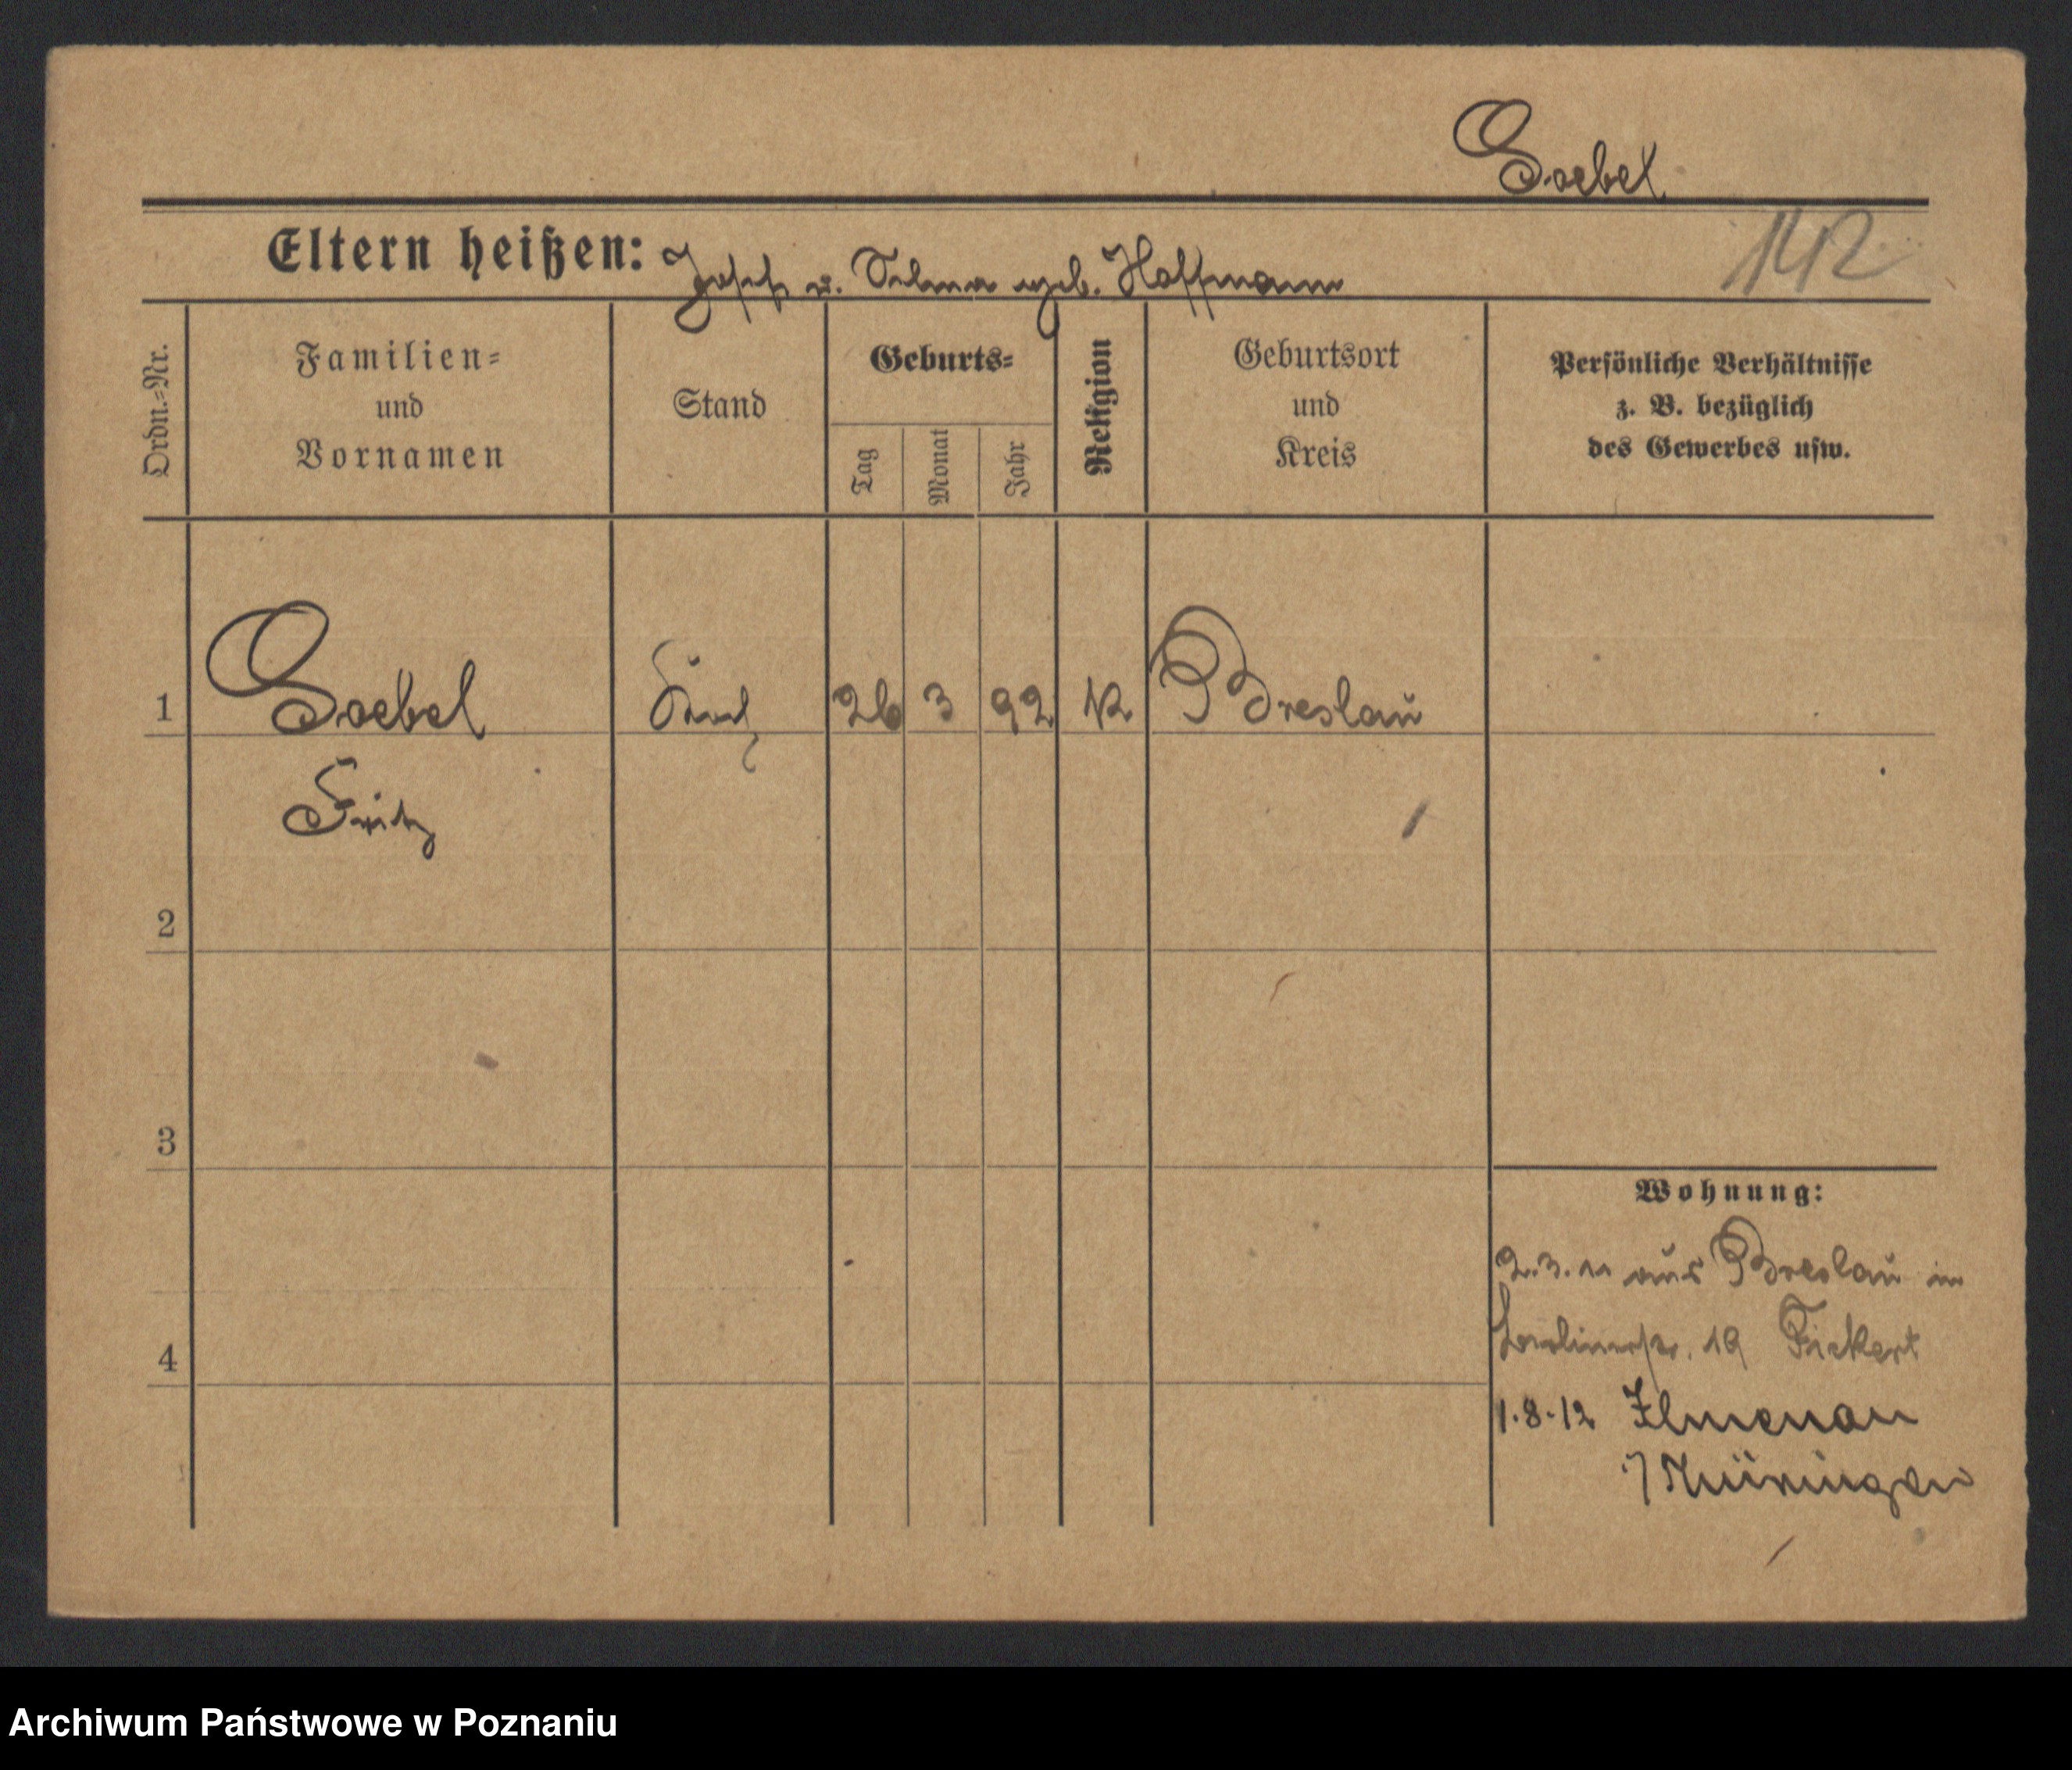 Goebel
Eltern heißen: Josef u. Selma geb. Hoffmann
142
Ordn.-Nr.
Familien-
und
Vornamen
Stand
Geburts-
Tag
Monat
Jahr
Religion
Geburtsort
und
Kreis
Persönliche Verhältnisse
z. B. bezüglich
des Gewerbes usw.
1 Goebel 26 3 92 K Breslau
Fritz
2
3
4
Wohnung:
2.3.11 aus Breslau in
Berlinerstr. 19 Fickert
1.8.12 Ilmenau
i/Thüringen
Archiwum Państwowe w Poznaniu